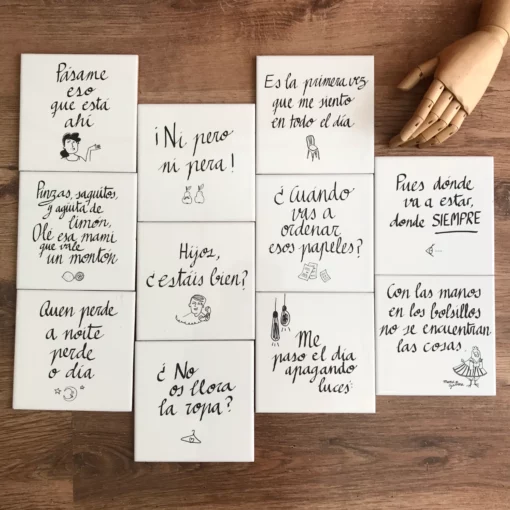 Pásame
eso
que está
ahí
Pinzas, saquitos,
y agüita de
limón,
Olé esa mami
que vale
un montón
Quen perde
a noite
perde
o día
¡Ni pero
ni pera!
Hijos,
¿estáis bien?
¿No
os llora
la ropa?
Es la primera vez
que me siento
en todo el día
¿Cuándo
vas a
ordenar
esos papeles?
Me
paso el día
apagando
luces
Pues dónde
va a estar,
donde SIEMPRE
Con las manos
en los bolsillos
no se encuentran
las cosas.